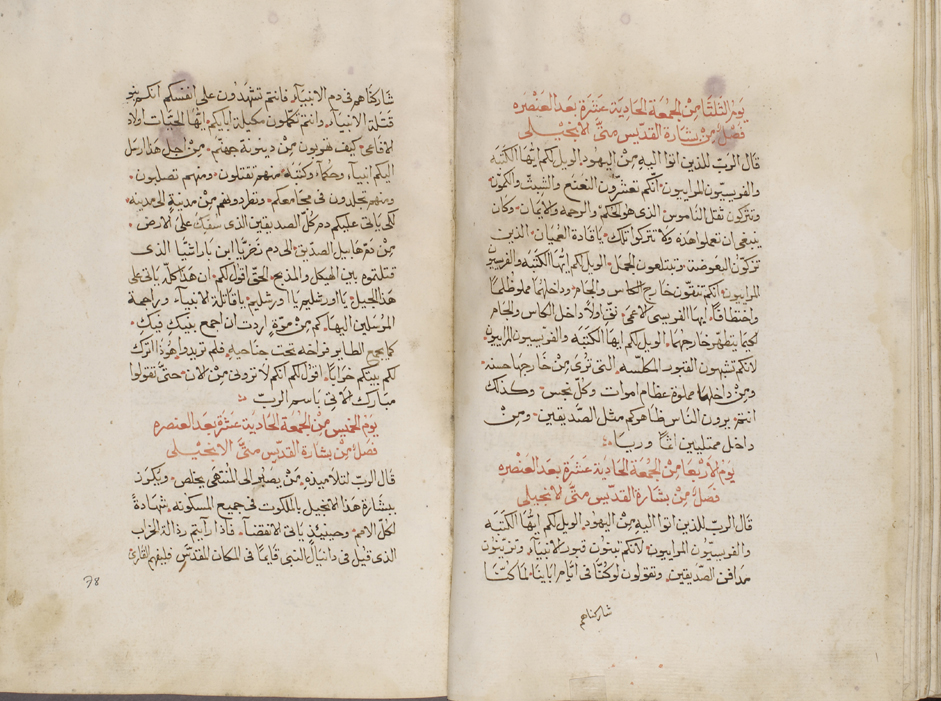 يوم الثلثا من الجمعة الحادية عشرة بعد العنصره
فصل من بشارة القديس متى الانجيلي
قال الرب للذين اتوا اليه من اليهود الويل لكم ايها الكتبه
والفريسيون المرايبون انكم تعشرون النعنع والشبث والكمون
وتتركون ثقل الناموس الذى هو الحكم والرحمه والايمان وكان
ينبغى ان تعملوا هذه ولا تتركوا تلك يا قادة العميان الذين
تزكون البعوضة وتبتلعون الجمل الويل لكم ايها الكتبه والفريسيون
المرايبون انكم تنقون خارج الكاس والجام وداخلهما مملو ظلما
واختطافا ايها الفريسى الاعمى نق اولا داخل الكاس والجام
لكيما يتطهر خارجهما الويل لكم ايها الكتبه والفريسيون المرايبون
لانكم تشبهون القبور المكلسه التى ترى من خارجها حسنه
ومن داخلها مملوة عظام اموات وكل نجس وكذلك
انتم يرون الناس ظاهركم مثل الصديقين ومن
داخل ممتليين اثما وريا
يوم الاربعا من الجمعة الحادية عشرة بعد العنصره
فصل من بشارة القديس متى الانجيلى
قال الرب للذين اتوا اليه من اليهود الويل لكم ايها الكتبه
والفريسيون المرايبون لانكم تبنون قبور الانبيآء وتزينون
مدافن الصديقين وتقولون لو كنا فى ايام اباينا لما كنا
شاركناهم
شاركناهم فى دم الانبيآء فانتم تشهدون على انفسكم انكم بنو
قتلة الانبيآء وانتم تكملون مكيلة ابايكم ايها الحيات اولاد
الافاعى كيف تهربون من دينونة جهنم من اجل هذا ارسل
اليكم انبيآء وحكمآء وكتبه منهم تقتلون ومنهم تصلبون
ومنهم تجلدون فى مجامعكم وتطردونهم من مدينة الى مدينه
لكى ياتى عليكم دم كل الصديقين الذى سفك على الارض
من دم هابيل الصديق الى دم زخريا ابن باراشيا الذى
قتلتموه بين الهيكل والمذبح الحق اقول لكم ان هذا كله ياتى على
هذا الجيل يا اورشليم يا اورشليم يا قاتلة الانبيآء وراجمة
المرسلين اليها كم من مرة اردت ان اجمع بنيك فيك
كما يجمع الطاير فراخه تحت جناحيه فلم تريدوا هوذا اترك
لكم بيتكم خرابا اقول لكم انكم لا ترونى من الان حتى تقولوا
مبارك الاتى باسم الرب
يوم الخميس من الجمعة الحادية عشرة بعد العنصره
فصل من بشارة القديس متى الانجيلى
قال الرب لتلاميذه من يصبر الى المنتهى يخلص ويكرز
ببشارة هذا الانجيل بالملكوت فى جميع المسكونه شهادة
لكل الامم وحينيذ ياتى الانقضآء فاذا رايتم رذالة الخراب
الذى قيل فى دانيال النبى قايما فى المكان المقدس فليفهم القارئ